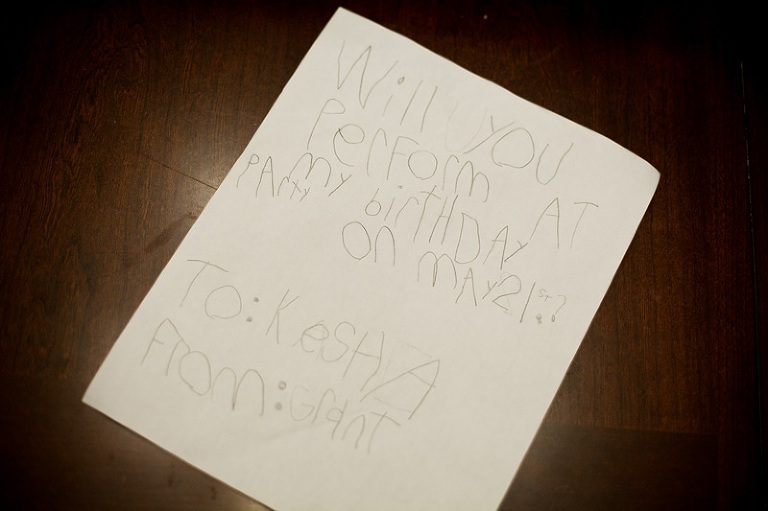 Will YOU
PerForm AT
MY birTHDAY
PArty ON MAY 21ST.?
To: KeSHA
From: Grant